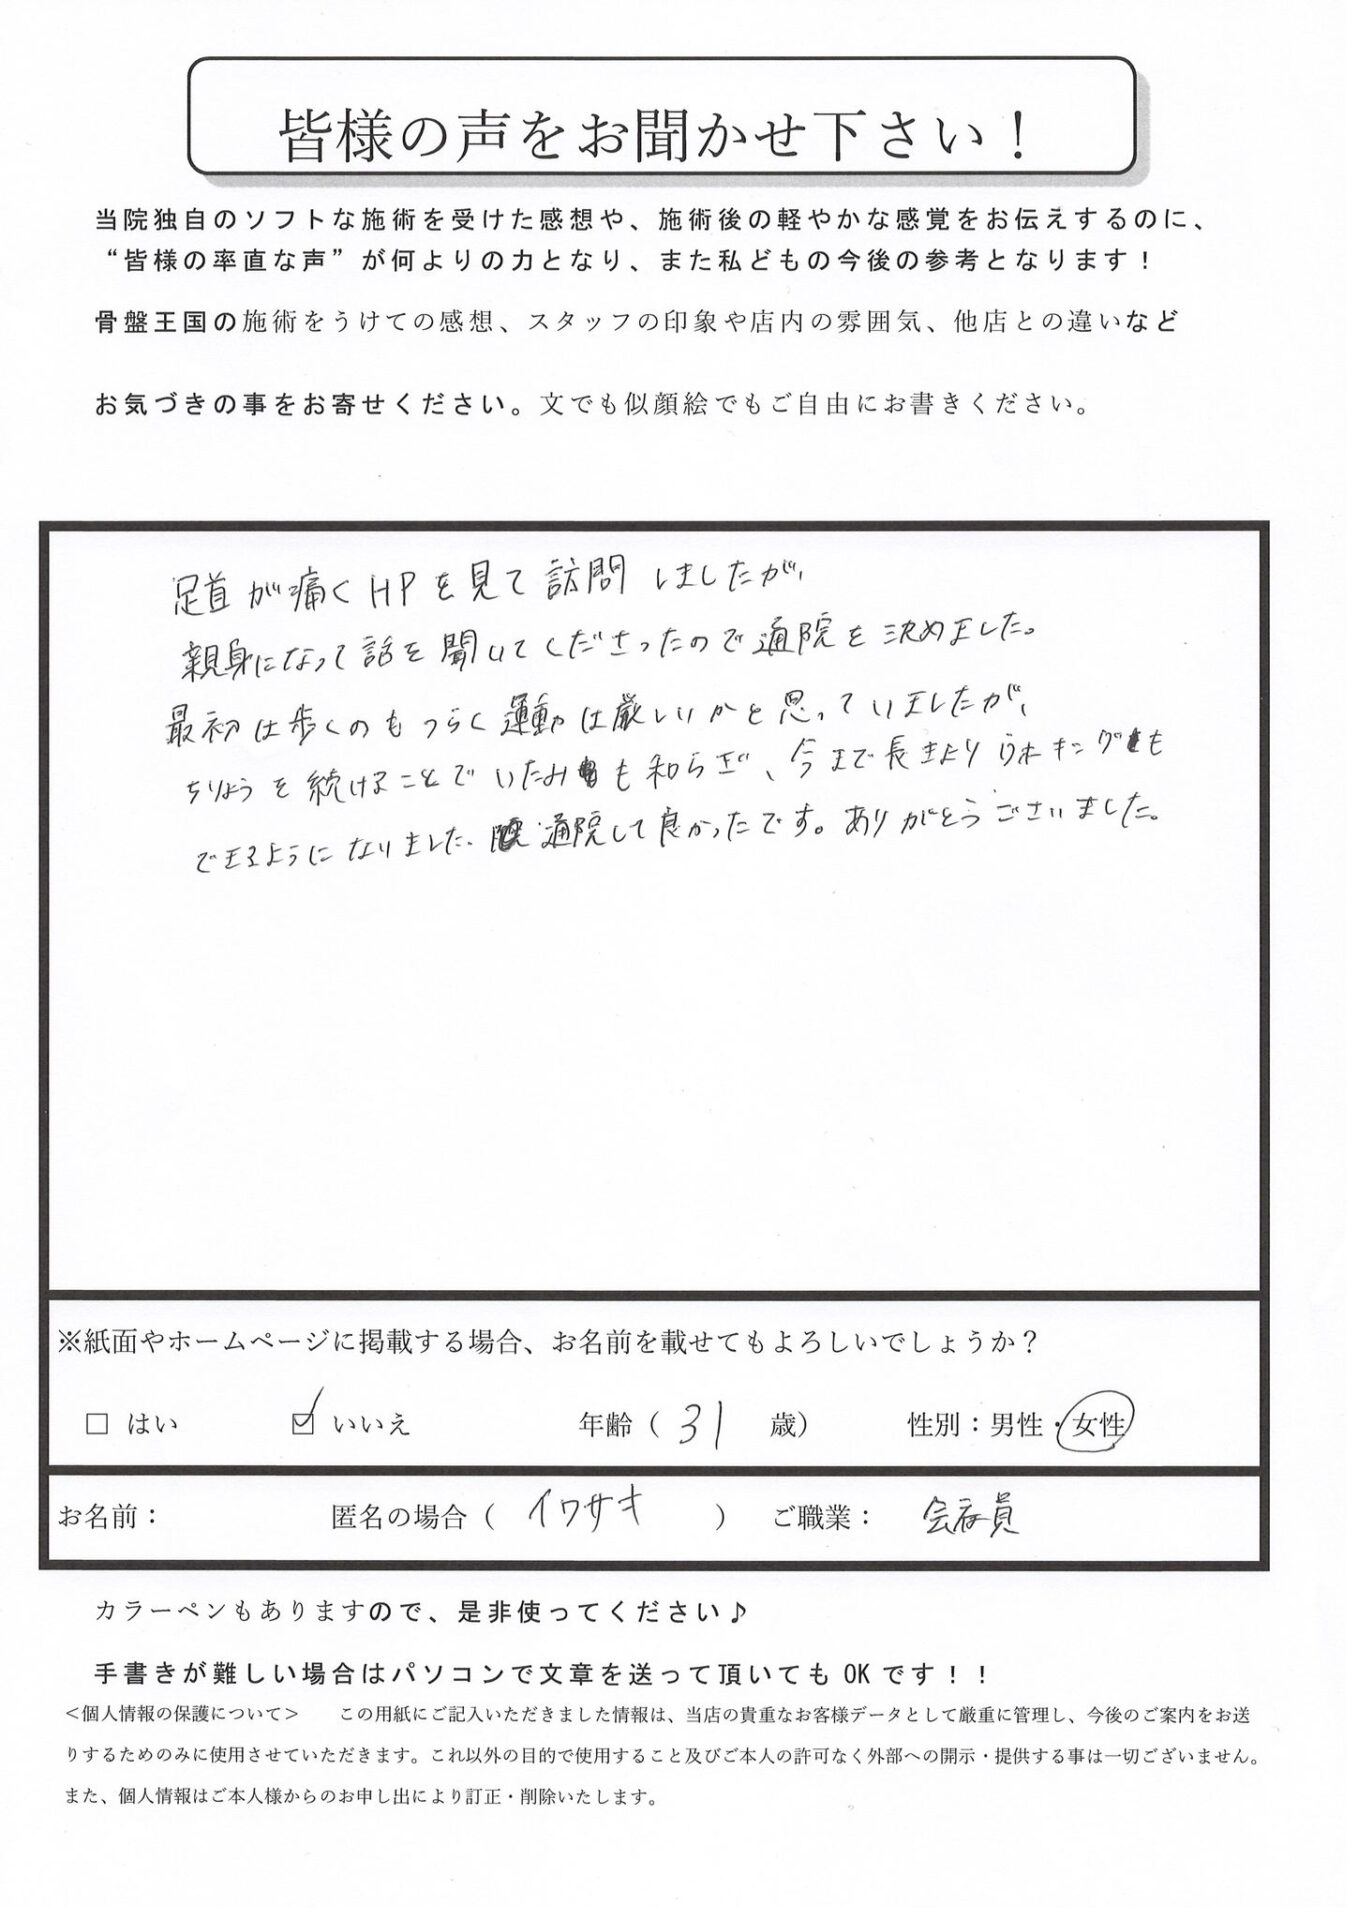 皆様の声をお聞かせ下さい！
当院独自のソフトな施術を受けた感想や、施術後の軽やかな感覚をお伝えするのに、
“皆様の率直な声”が何よりの力となり、また私どもの今後の参考となります！
骨盤王国の施術をうけての感想、スタッフの印象や店内の雰囲気、他店との違いなど
お気づきの事をお寄せください。文でも似顔絵でもご自由にお書きください。
足首が痛くHPを見て訪問しましたが、
親身になって話を聞いてくださったので通院を決めました。
最初は歩くのもつらく運動は厳しいかと思っていましたが、
ちりょうを続けることでいたみも和らぎ、今まで長きよりウォーキングも
できるようになりました。通院して良かったです。ありがとうございました。
※紙面やホームページに掲載する場合、お名前を載せてもよろしいでしょうか？
□ はい ☑ いいえ 年齢（ 31 歳） 性別：男性・女性
お名前： 匿名の場合（ イワサキ ） ご職業： 会社員
カラーペンもありますので、是非使ってください♪
手書きが難しい場合はパソコンで文章を送って頂いてもOKです！！
＜個人情報の保護について＞ この用紙にご記入いただきました情報は、当店の貴重なお客様データとして厳重に管理し、今後のご案内をお送
りするためのみに使用させていただきます。これ以外の目的で使用すること及びご本人の許可なく外部への開示・提供する事は一切ございません。
また、個人情報はご本人様からのお申し出により訂正・削除いたします。